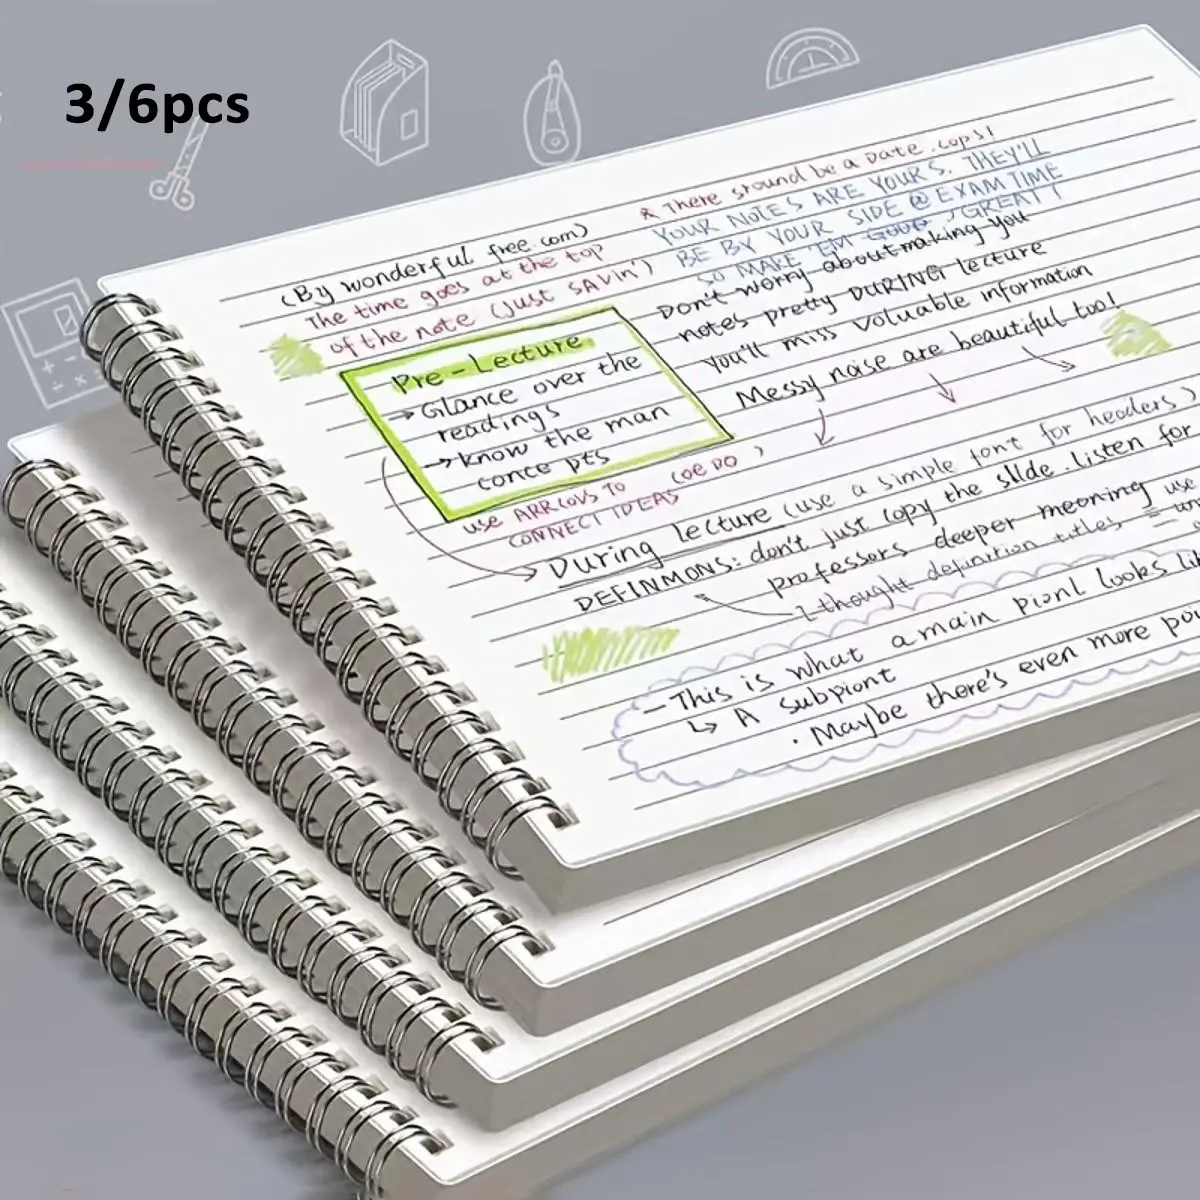 3/6pcs
(By wonderful free.com)
The time goes at the top
of the note (just SAVin')
& There sround be a Date .cops!
YOUR NOTES ARE YOURS. THEY'LL
BE BY YOUR SIDE @ EXAM TIME
SO MAKE 'EM GOOD, GREAT!
Don't worry about making you
notes pretty DURING lecture
You'll miss valuable information
Messy noise are beautiful too!
Pre-Lecture
→Glance over the
readings
→know the man
conce pts
use ARRCOVS TO (OE DO )
CONNECT IDEAS
During lecture (use a simple font for headers)
DEFINMONS: don't just copy the slide .listen for
professors deeper meoning use
I thought definition titles =
- This is what a main pionl looks li
↳ A subpiont
· Maybe there's even more po